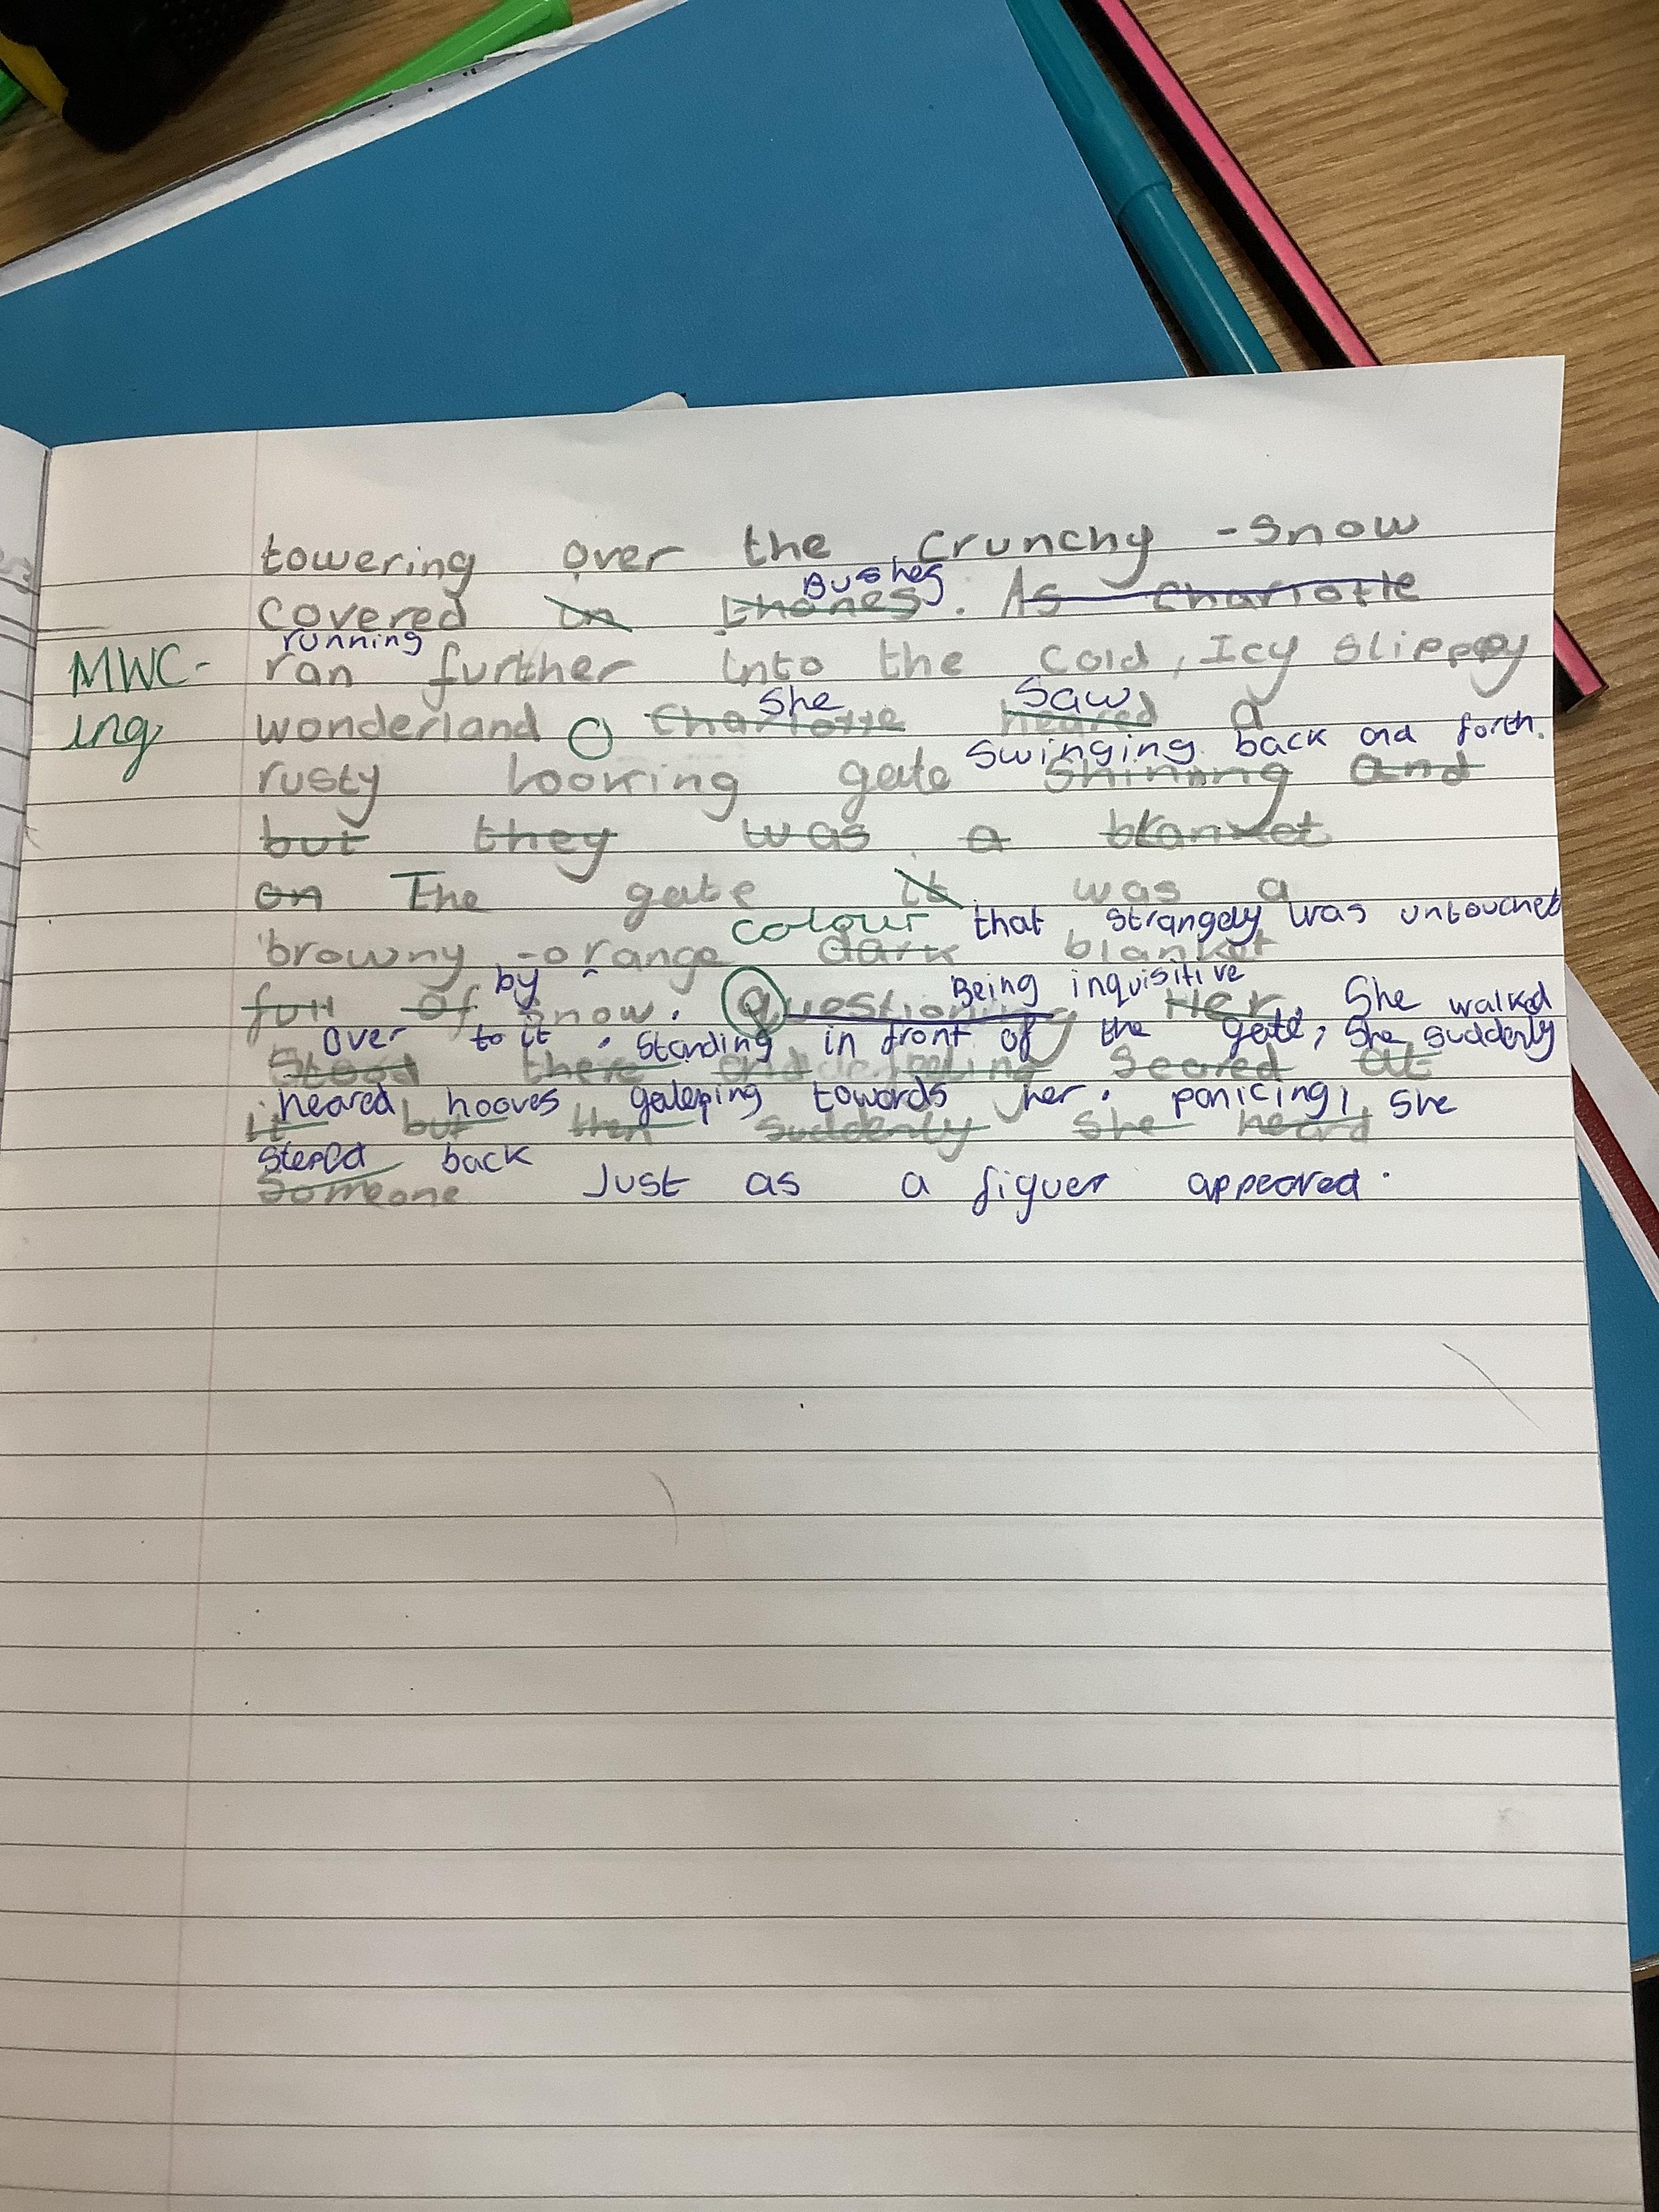 towering over the crunchy - snow
Bushes
covered in thornes. As Charlotte
running
MWC- ran further into the cold, Icy slippey
She saw
ing, wonderland Charlotte heared a
swinging back and forth.
rusty looking gate shinning and
but they was a blanket
on The gate it was a
colour that strangely was untouched
browny -orange dark blanket
by Being inquisitive
full of snow. Questioning Her, She walked
over to it. Standing in front of the gate, she suddenly
Stood there and feeling Scared at
heared hooves galeping towards her. panicing, she
it but then suddenly she heard
steped back
Someone Just as a figuer appeared.